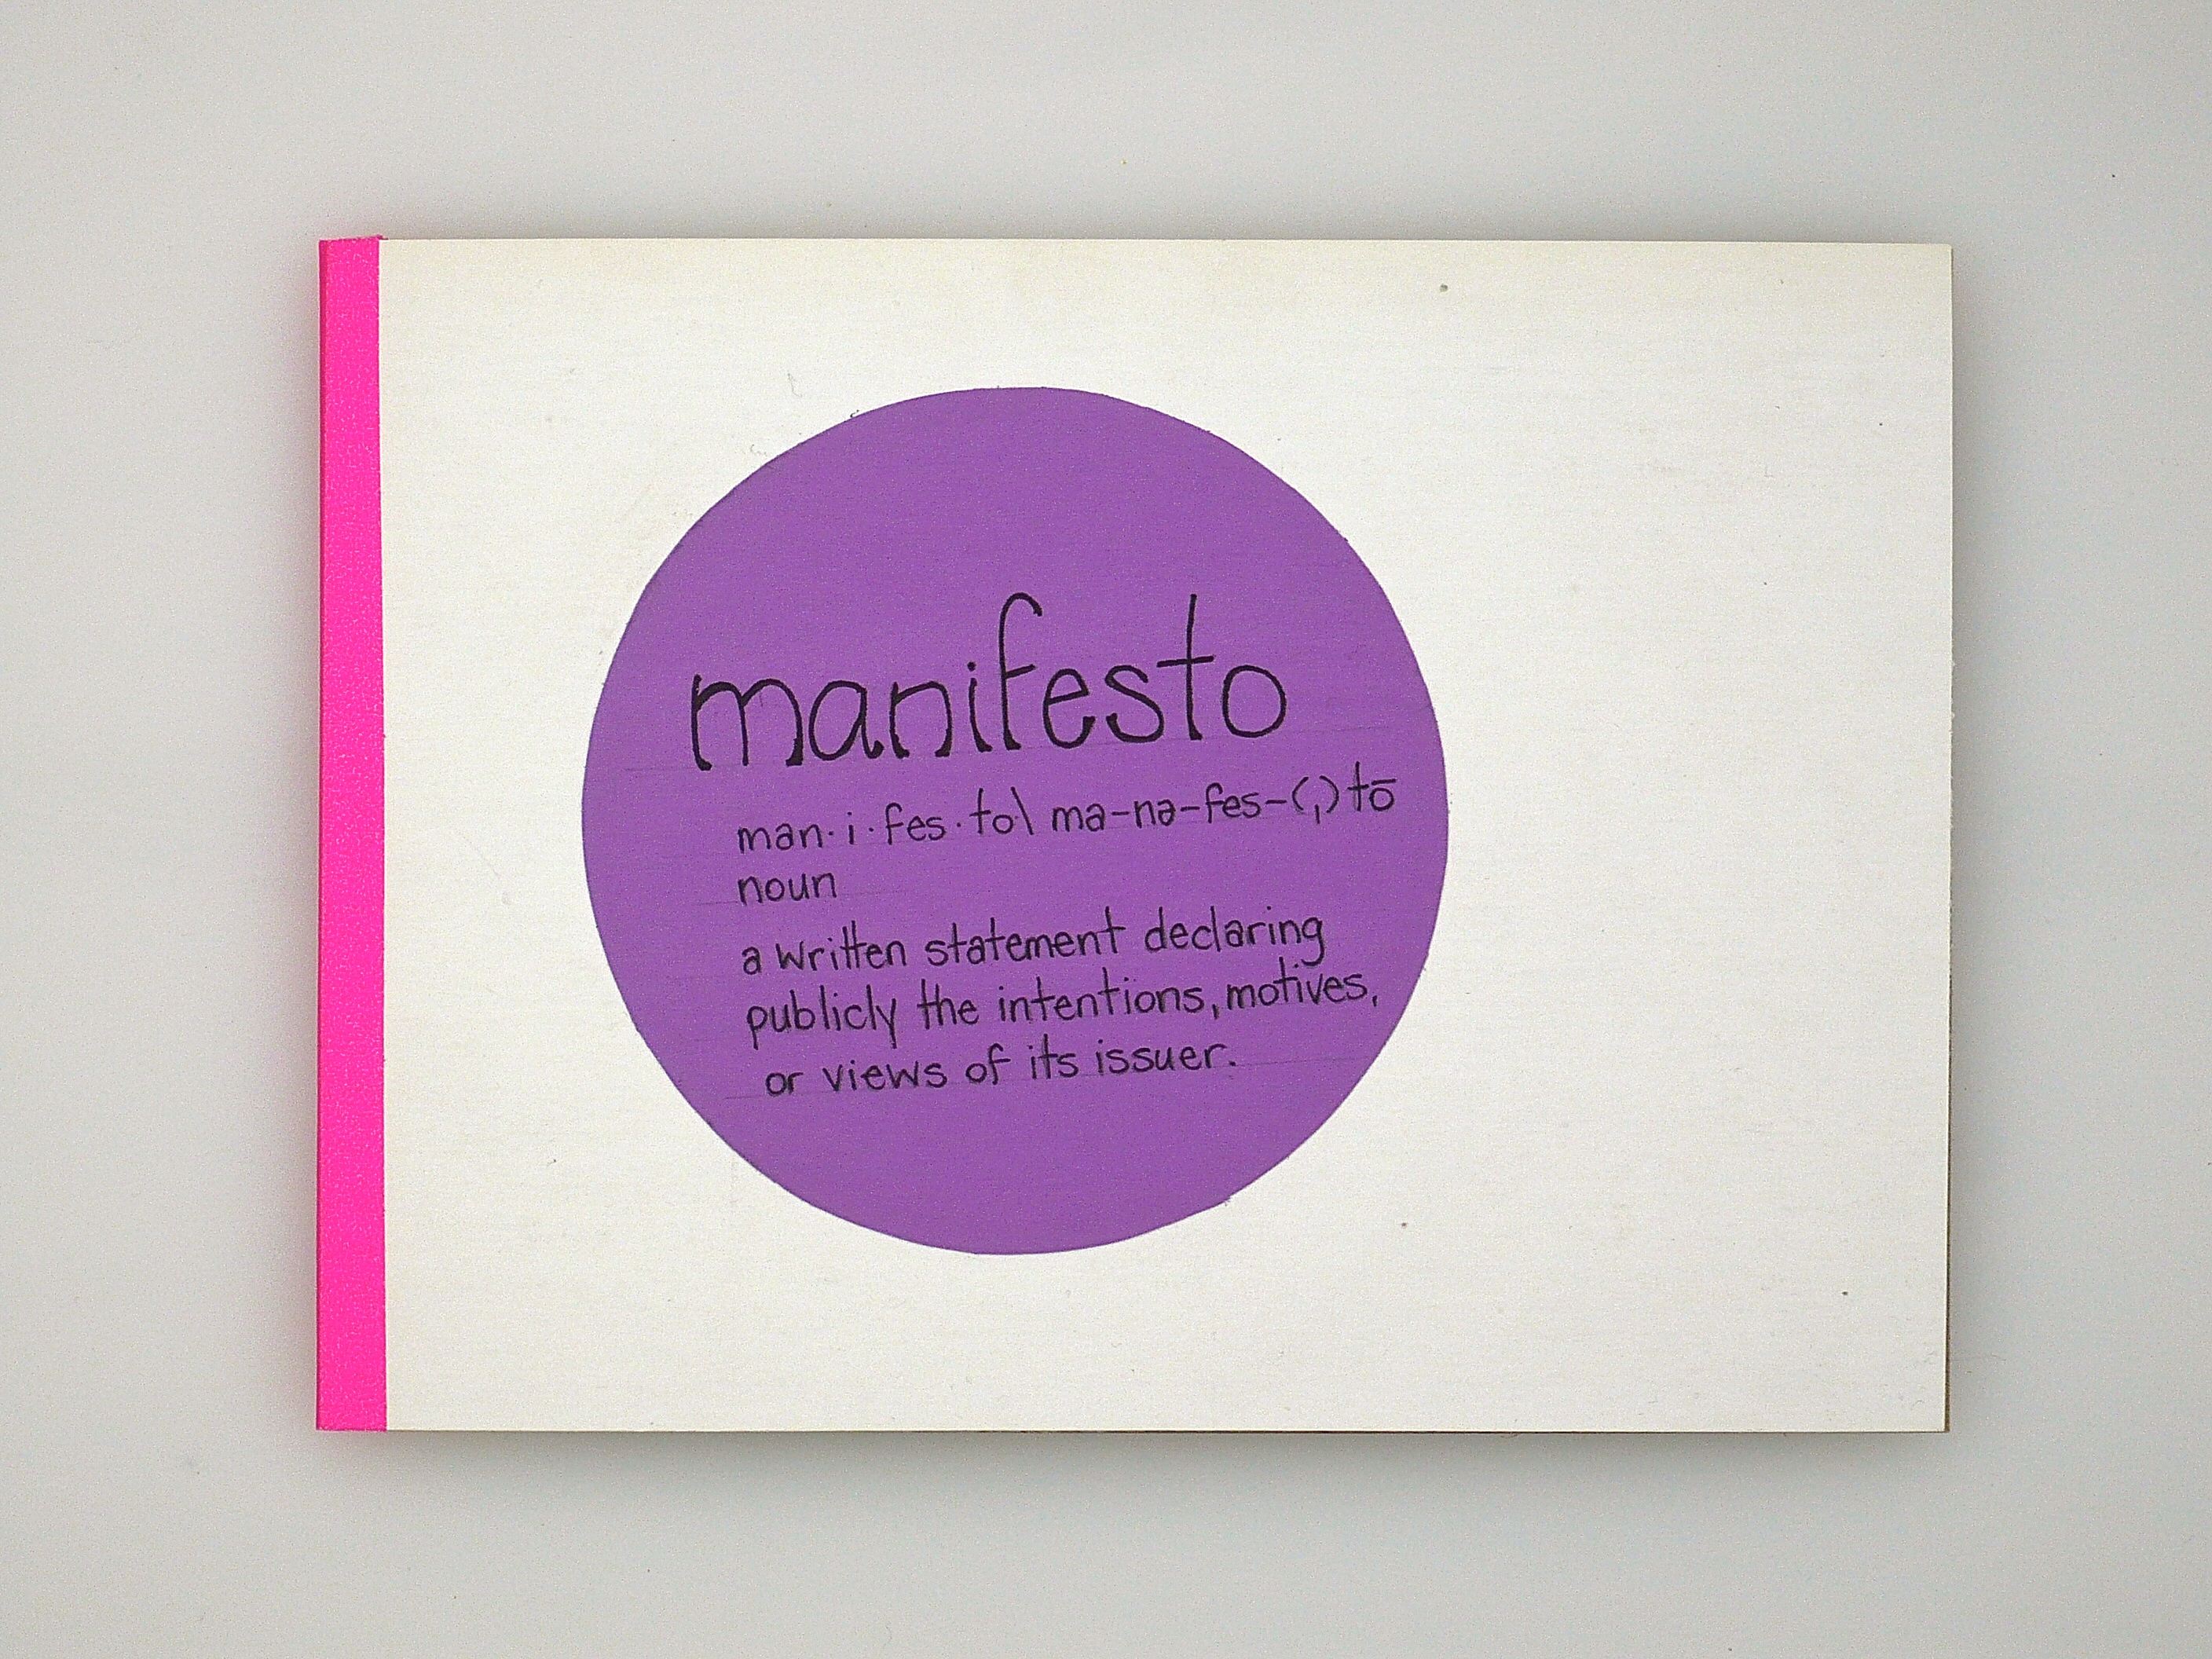 manifesto
man·i·fes·to\ ma-nə-fes-(ˌ)tō
noun
a written statement declaring
publicly the intentions, motives,
or views of its issuer.